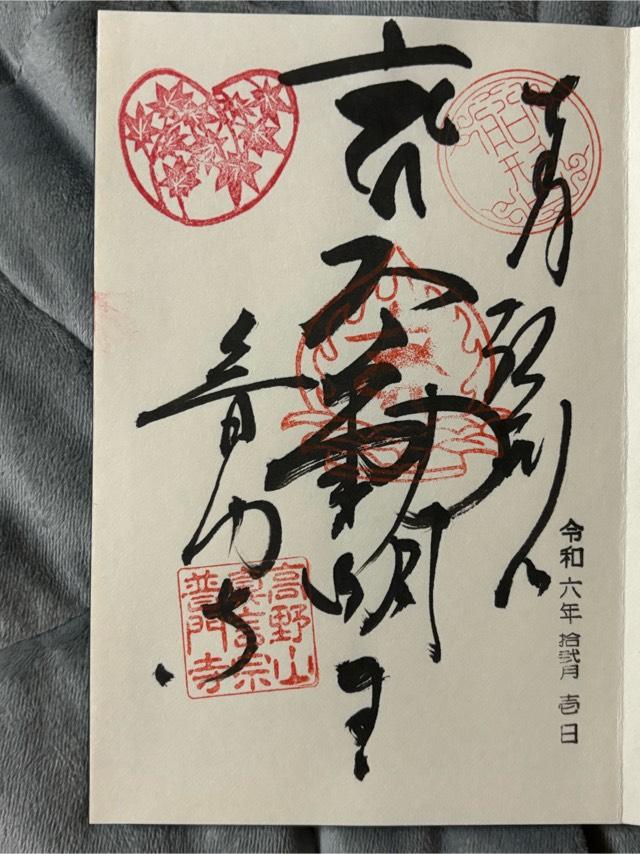 船形山
不動明王
普門寺
高野山
真言宗
普門寺
令和六年 拾弐月 壱日